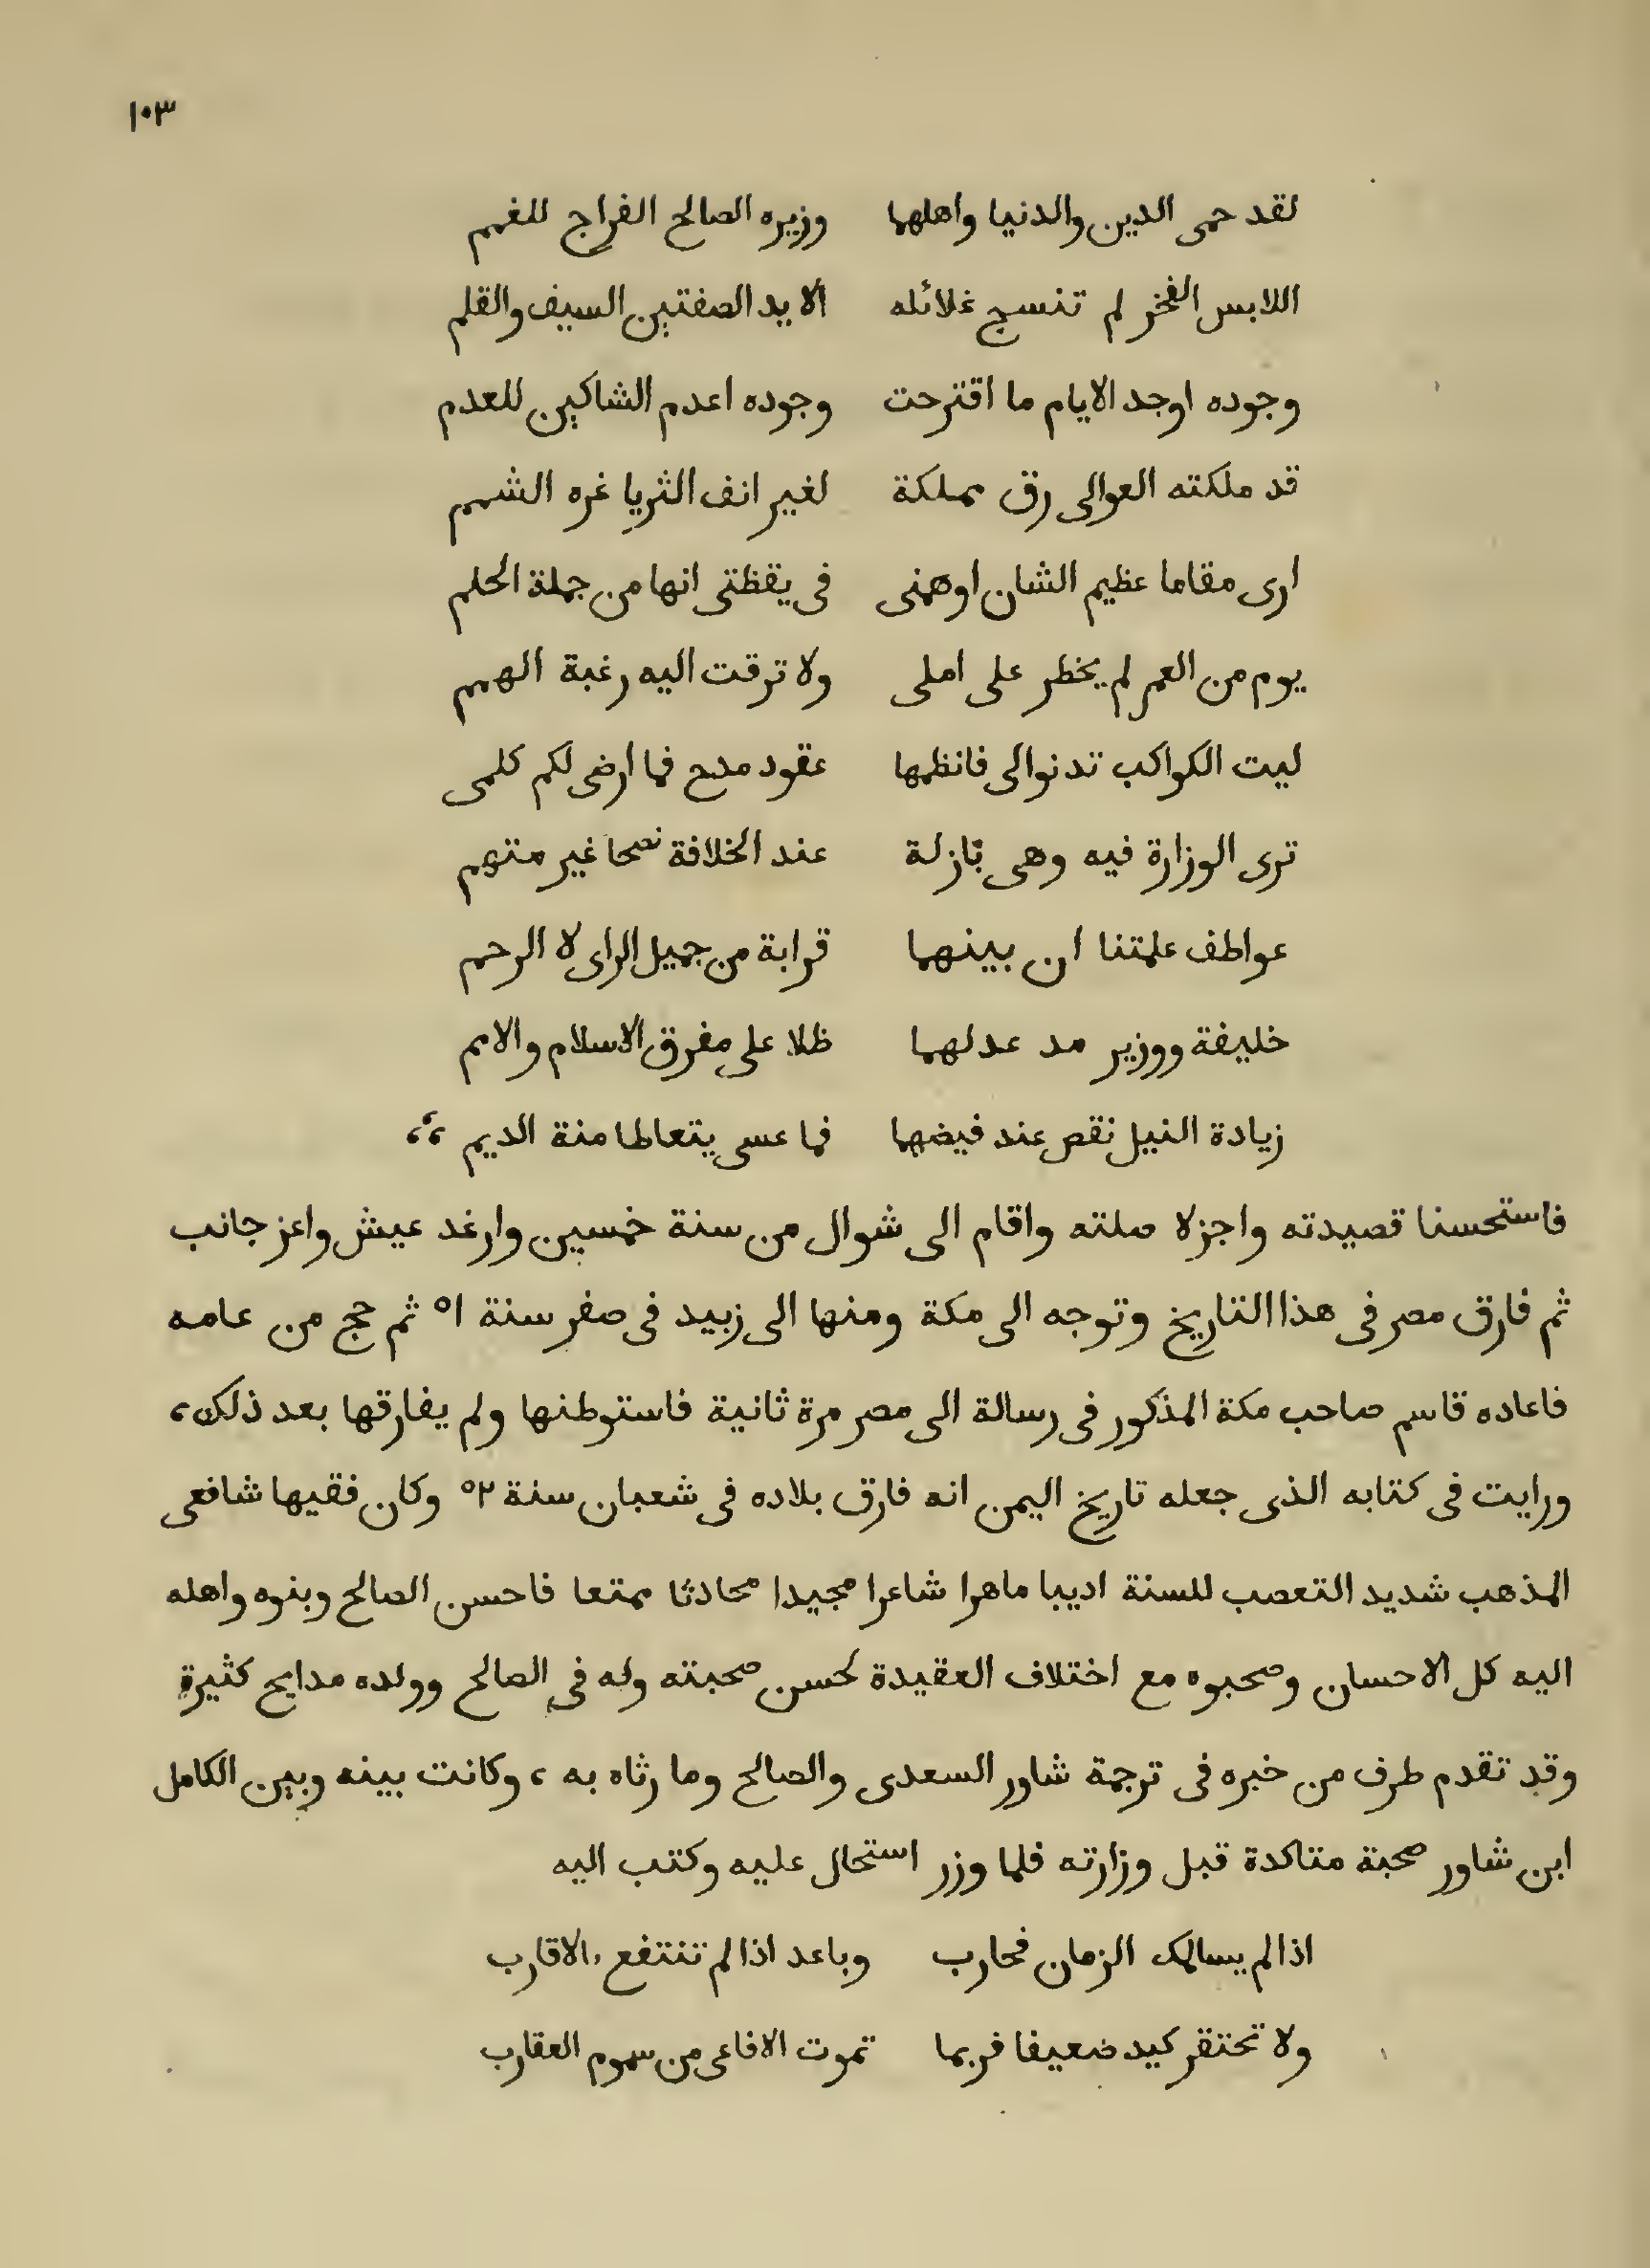 ١٠٣
لقد حمى الدين والدنيا واهلهما وزيره الصالح الفراج للغمم
اللابس الفخر لم تنسج غلائله الا يد الصفتين السيف والقلم
وجوده اوجد الايام ما اقترحت وجوده اعدم الشاكين للعدم
قد ملكته العوالى رق مملكة لغير انف الثريا غره الشمم
ارى مقاما عظيم الشان اوهمنى فى يقظتى انها من جملة الحلم
يوم من العمر لم يخطر على املى ولا ترقت اليه رغبة الهمم
ليت الكواكب تدنوالى فانظمها عقود مدح فما ارضى لكم كلمى
ترى الوزارة فيه وهى بازلة عند الخلافة نصحا غير متهم
عواطف علمتنا ان بينهما قرابة من جميل الراى لا الرحم
خليفة ووزير مد عدلهما ظلا على مفرق الاسلام والامم
زيادة النيل نقص عند فيضهما فما عسى يتعاطا منة الديم ،،
فاستحسنا قصيدته واجزلا صلته واقام الى شوال من سنة خمسين وارغد عيش واعز جانب
ثم فارق مصر فى هذا التاريخ وتوجه الى مكة ومنها الى زبيد فى صفر سنة ٥١ ثم حج من عامه
فاعاده قاسم صاحب مكة المذكور فى رسالة الى مصر مرة ثانية فاستوطنها ولم يفارقها بعد ذلك،
ورايت فى كتابه الذى جعله تاريخ اليمن انه فارق بلاده فى شعبان سنة ٥٢ وكان فقيها شافعى
المذهب شديد التعصب للسنة اديبا ماهرا شاعرا مجيدا محادثا ممتعا فاحسن الصالح وبنوه واهله
اليه كل الاحسان وصحبوه مع اختلاف العقيدة لحسن صحبته وله فى الصالح وولده مدايح كثيرة
وقد تقدم طرف من خبره فى ترجمة شاور السعدى والصالح وما رثاه به ، وكانت بينه وبين الكامل
ابن شاور صحبة متاكدة قبل وزارته فلما وزر استحال عليه وكتب اليه
اذا لم يسالمك الزمان فحارب وباعد اذا لم تنتفع بالاقارب
ولا تحتقر كيد ضعيفا فربما تموت الافاعى من سموم العقارب